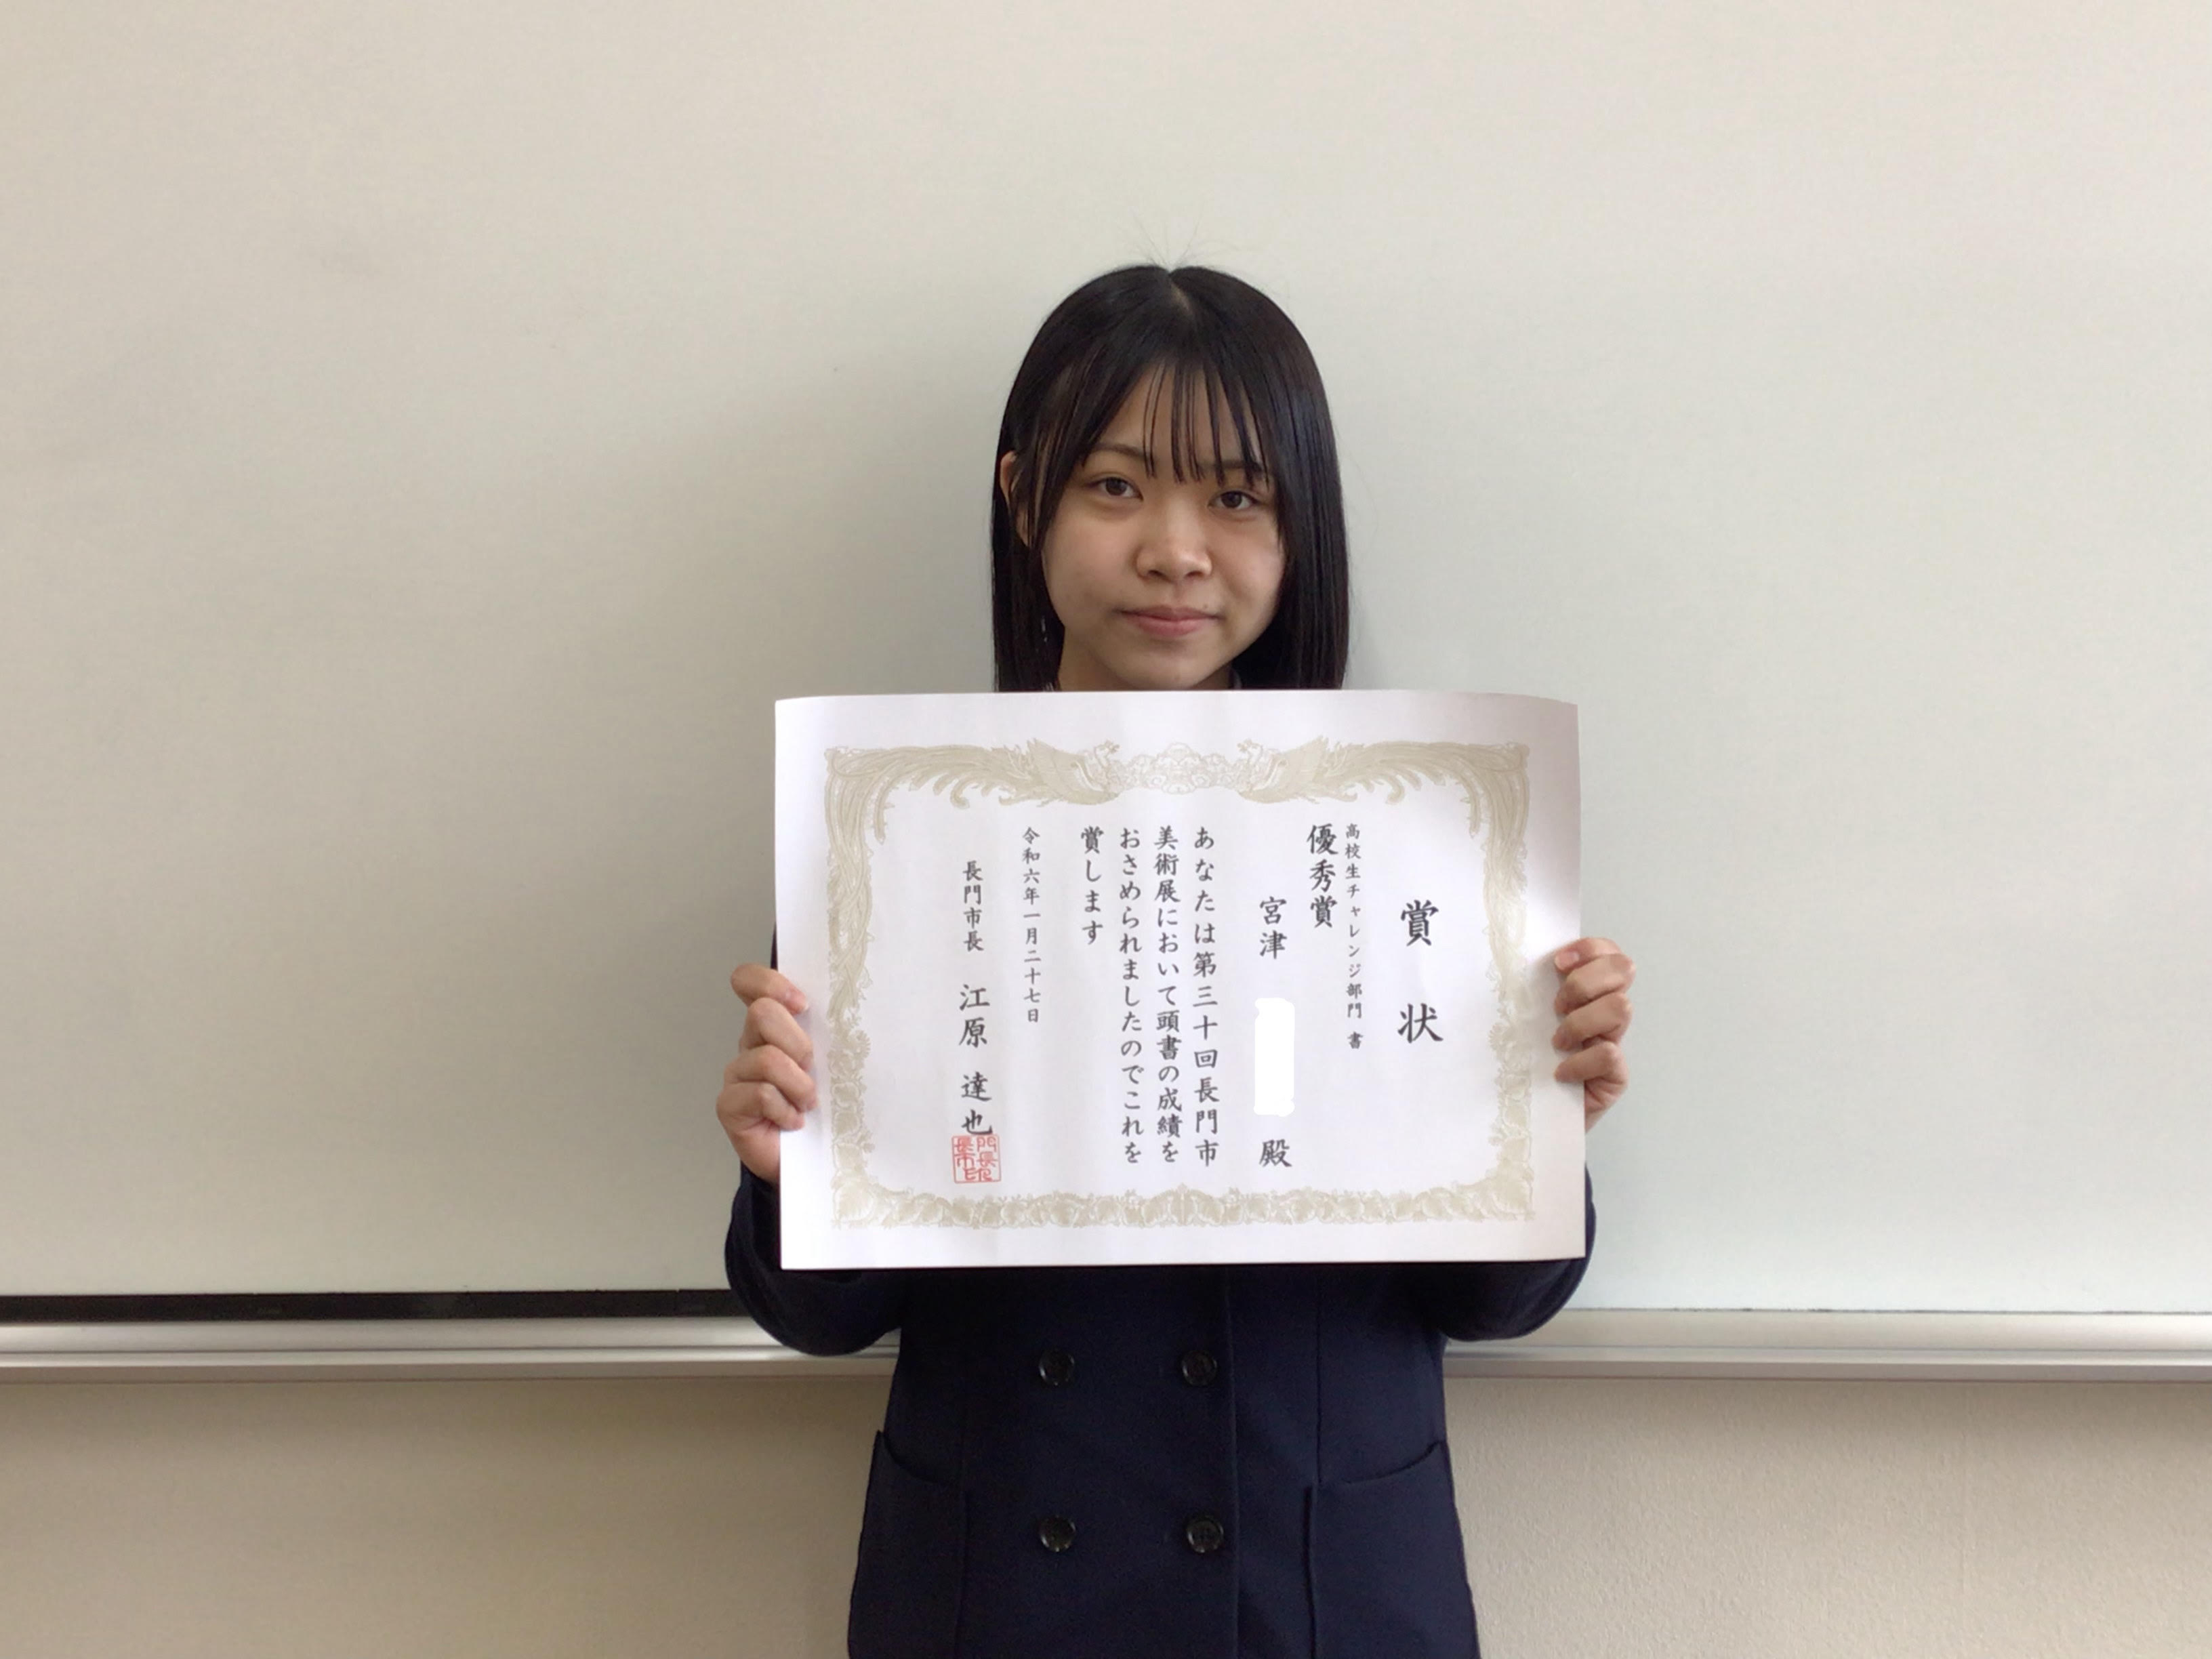 賞状
高校生チャレンジ部門 書
優秀賞
宮津 殿
あなたは第三十回長門市
美術展において頭書の成績を
おさめられましたのでこれを
賞します
令和六年一月二十七日
長門市長 江原達也